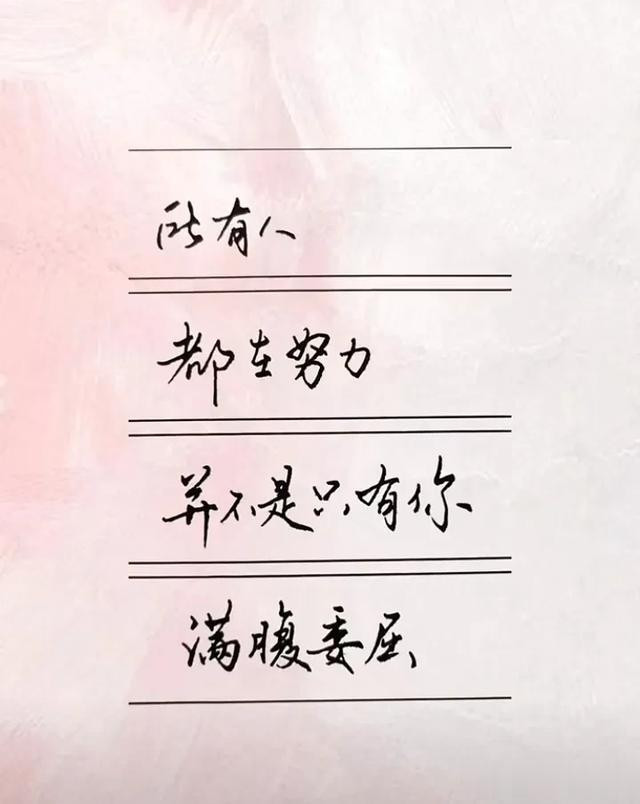 所有人
都在努力
并不是只有你
满腹委屈